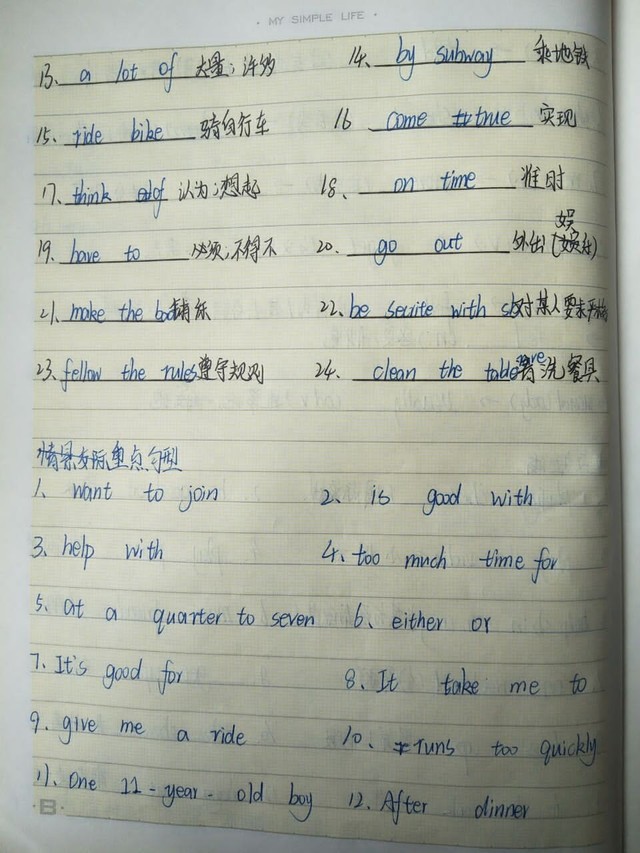 · MY SIMPLE LIFE ·
13、 a lot of 大量；许多 14、 by subway 乘地铁
15、 ride bike 骑自行车 16 come true 实现
17、 think of 认为；想起 18、 on time 准时
19、 have to 必须；不得不 20、 go out 外出(娱乐)
21、 make the bed 铺床 22、 be serite with sb 对某人要求严格
23、 fellow the rules 遵守规则 24、 clean the tableware 清洗餐具
情景交际,重点句型
1、 want to join 2、 is good with
3、 help with 4、 too much time for
5、 at a quarter to seven 6、 either or
7、 It's good for 8、 It take me to
9、 give me a ride 10、 runs too quickly
11、 One 11-year-old boy 12、 After dinner
·B·